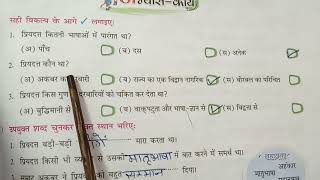 अभ्यास-कार्य
सही विकल्प के आगे ✓ लगाइए।
1. प्रियदत्त कितनी भाषाओं में पारंगत था?
(अ) पाँच (ब) दस (स) अनेक
2. प्रियदत्त कौन था?
(अ) अकबर का दरबारी (ब) राज्य का एक विद्वान नागरिक (स) बीरबल का परिचित
3. प्रियदत्त किस गुण से दरबारियों को चकित कर देता था?
(अ) बुद्धिमानी से (ब) वाक्पटुता और भाषा-ज्ञान से (स) विद्वता से
उपयुक्त शब्द चुनकर रिक्त स्थान भरिए:
1. प्रियदत्त बड़ी-बड़ी मारा करता था।
2. प्रियदत्त किसी भी व्यक्ति से उसकी मातृभाषा में बात करने में समर्थ था।
3. सम्राट अकबर ने प्रियदत्त को बहुत सम्मान दिया।
अहंकार
मातृभाषा